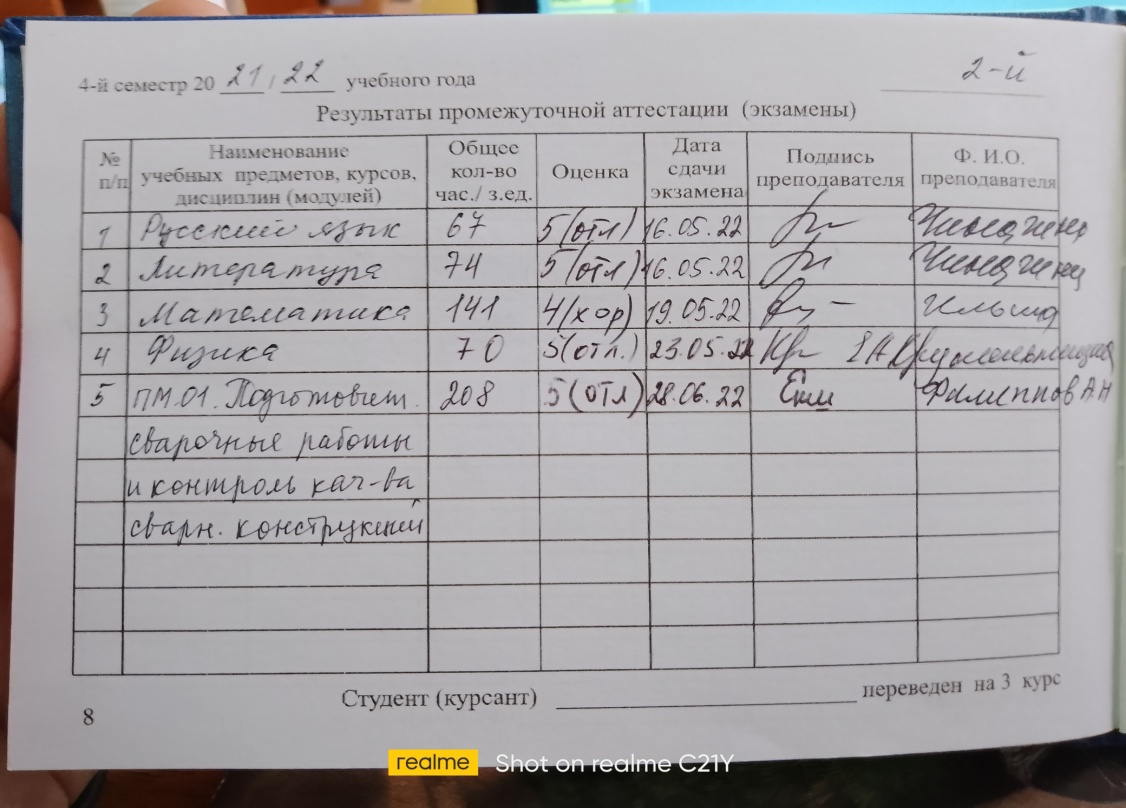 4-й семестр 20 21 / 22 учебного года
2-й
Результаты промежуточной аттестации (экзамены)
№ п/п Наименование учебных предметов, курсов, дисциплин (модулей) Общее кол-во час./ з.ед. Оценка Дата сдачи экзамена Подпись преподавателя Ф. И.О. преподавателя
1 Русский язык 67 5(отл) 16.05.22
2 Литература 74 5(отл) 16.05.22
3 Математика 141 4(хор) 19.05.22
4 Физика 70 5(отл.) 23.05.22
5 ПМ.01. Подготовит. 208 5(отл) 28.06.22 Филиппов А Н
сварочные работы
и контроль кач-ва
сварн. конструкций
Студент (курсант) переведен на 3 курс
8
realme Shot on realme C21Y